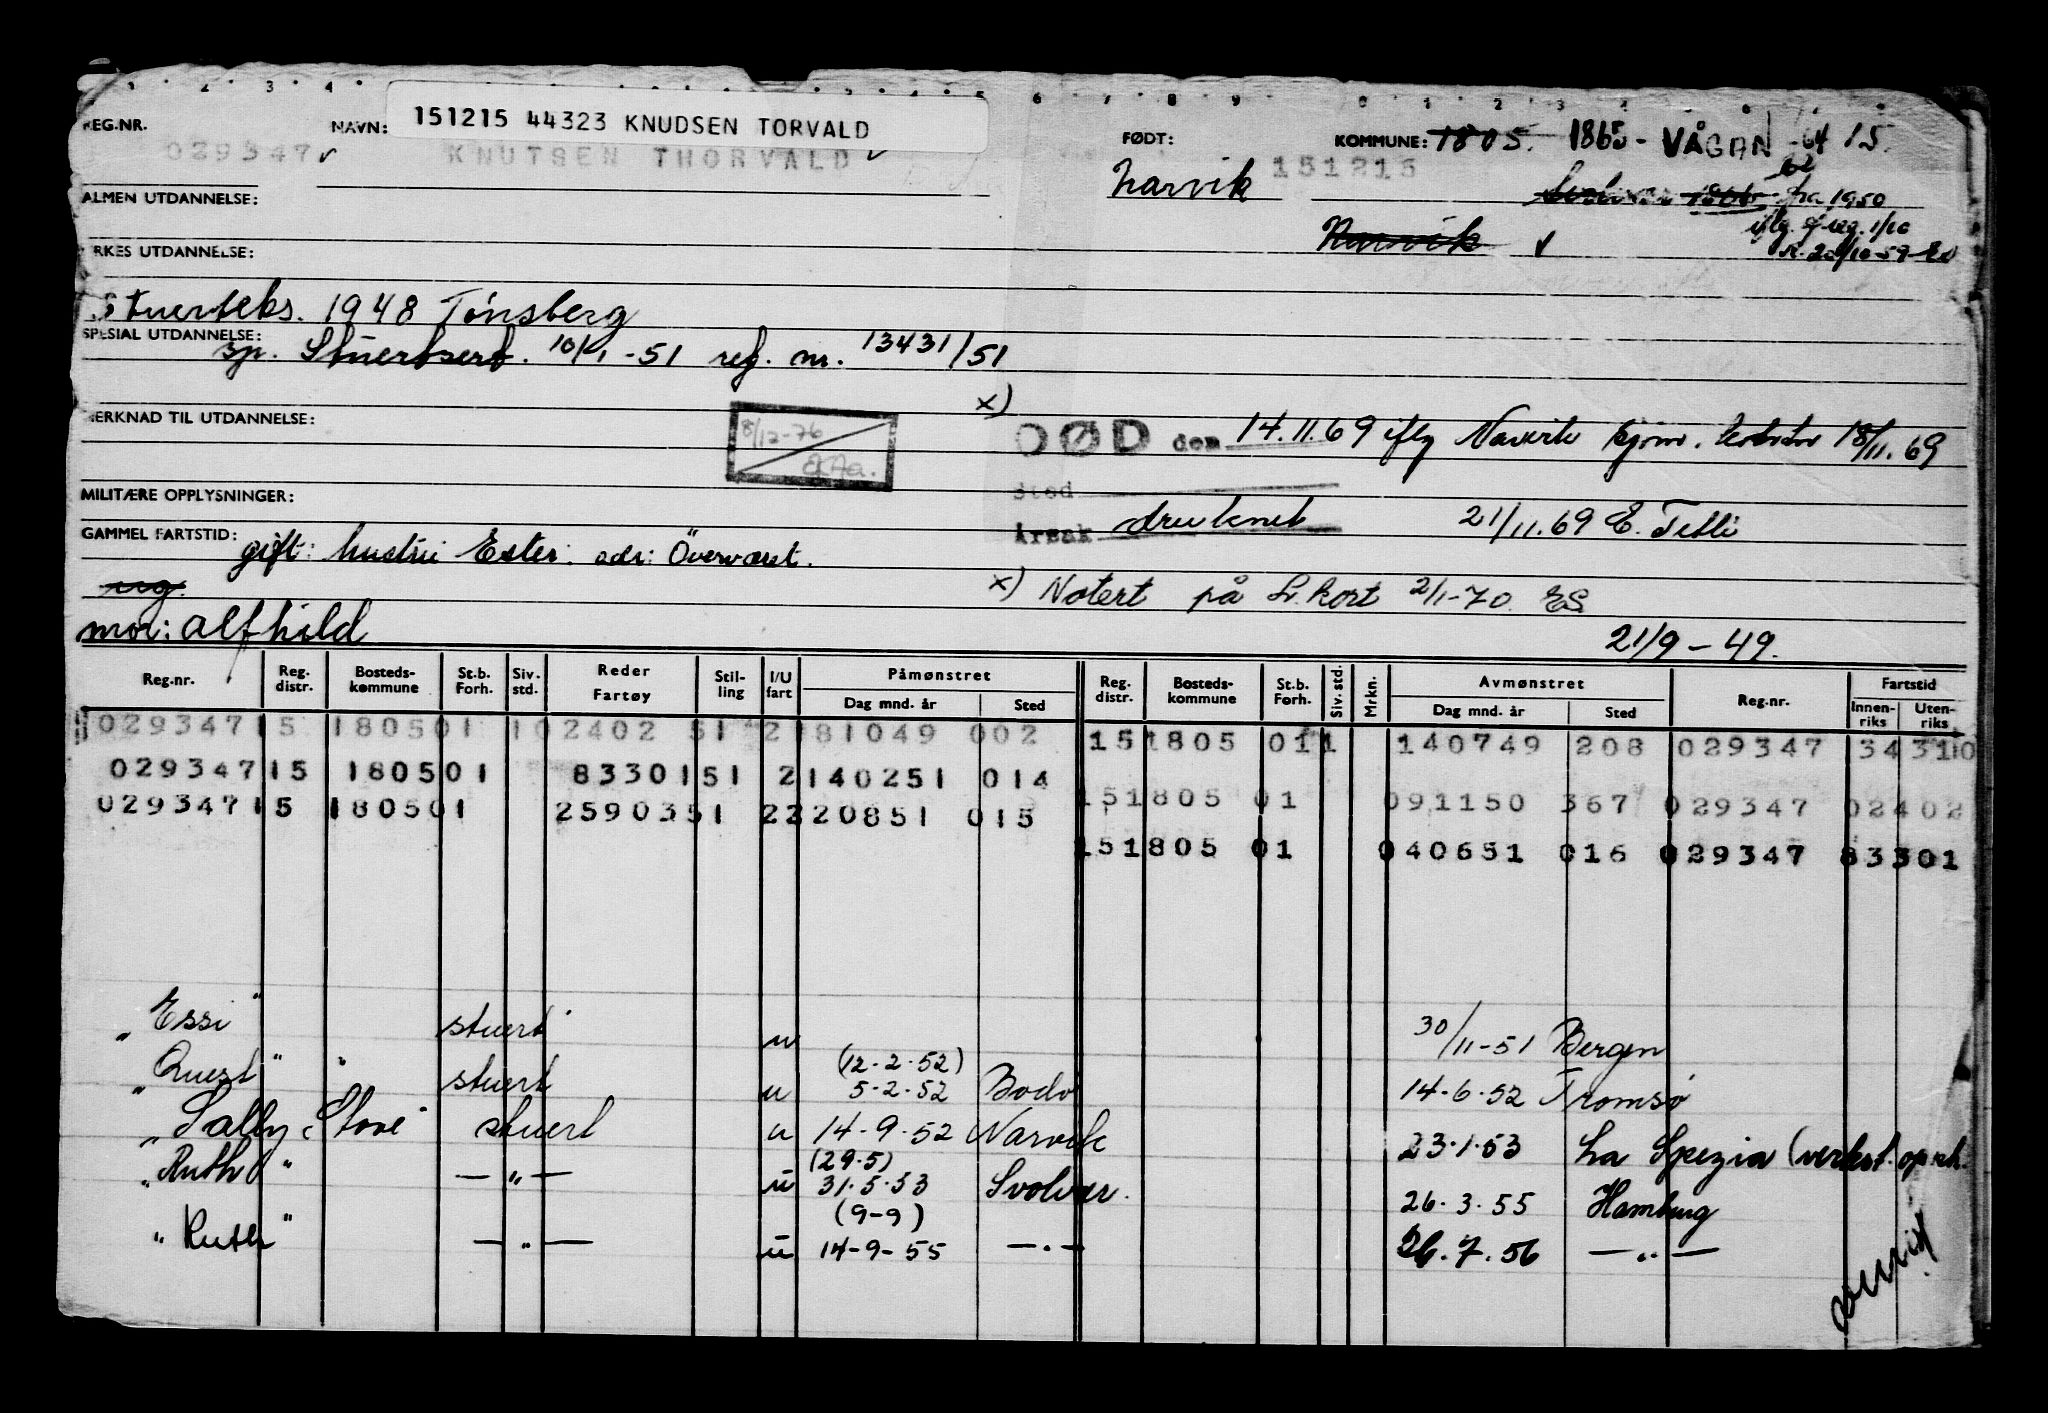 REG.NR. NAVN: 151215 44323 KNUDSEN TORVALD FØDT: KOMMUNE: 1805. 1865 - VÅGAN -64 15.
029347 KNUTSEN THORVALD 151215
Narvik
ALMEN UTDANNELSE: 1866 fra 1950
Narvik iflg. 1/10
YRKES UTDANNELSE:
Stuerteks. 1948 Tønsberg
SPESIAL UTDANNELSE:
sp. Stuertsert. 10/1-51 reg. nr. 13431/51
x)
MERKNAD TIL UTDANNELSE:
8/12-76
DØD den 14.11.69 iflg Narvik 18/11.69
Sted
MILITÆRE OPPLYSNINGER:
Årsak druknet 21/11.69 E. Tetli
GAMMEL FARTSTID: gift: hustru Ester. adr: Överværet.
ug.
x) Notert på Lt. kort 2/1-70 ES
mor: Alfhild
21/9-49.
Reg.nr. Reg. distr. Bosteds-kommune St.b. Forh. Siv. std. Reder Fartøy Stil-ling I/U fart Påmønstret Dag mnd. år Sted Reg. distr. Bosteds-kommune St.b. Forh. Siv. std. Mrkn. Avmønstret Dag mnd. år Sted Reg.nr. Fartstid Innen-riks Uten-riks
029347 15 1805 01 1 02402 51 2 181049 002
15 1805 01 1 140749 208 029347 34310
029347 15 1805 01 83301 51 2 140251 014
15 1805 01 091150 367 029347 02402
029347 15 1805 01 25903 51 2 220851 015
15 1805 01 040651 016 029347 83301
"Essi" stuert u 30/11-51 Bergen
"Quest" " stuert u (12.2.52) 5-2-52 Bodø 14-6-52 Tromsø
"Sally Stove" stuert u 14-9-52 Narvik 23.1.53 La Spezia (verkst. opph.
"Ruth" — " — u (29.5) 31.5.53 Svolvær. 26.3.55 Hamburg
"Ruth" — " — u (9-9) 14-9-55 — " — 26.7.56 — " —